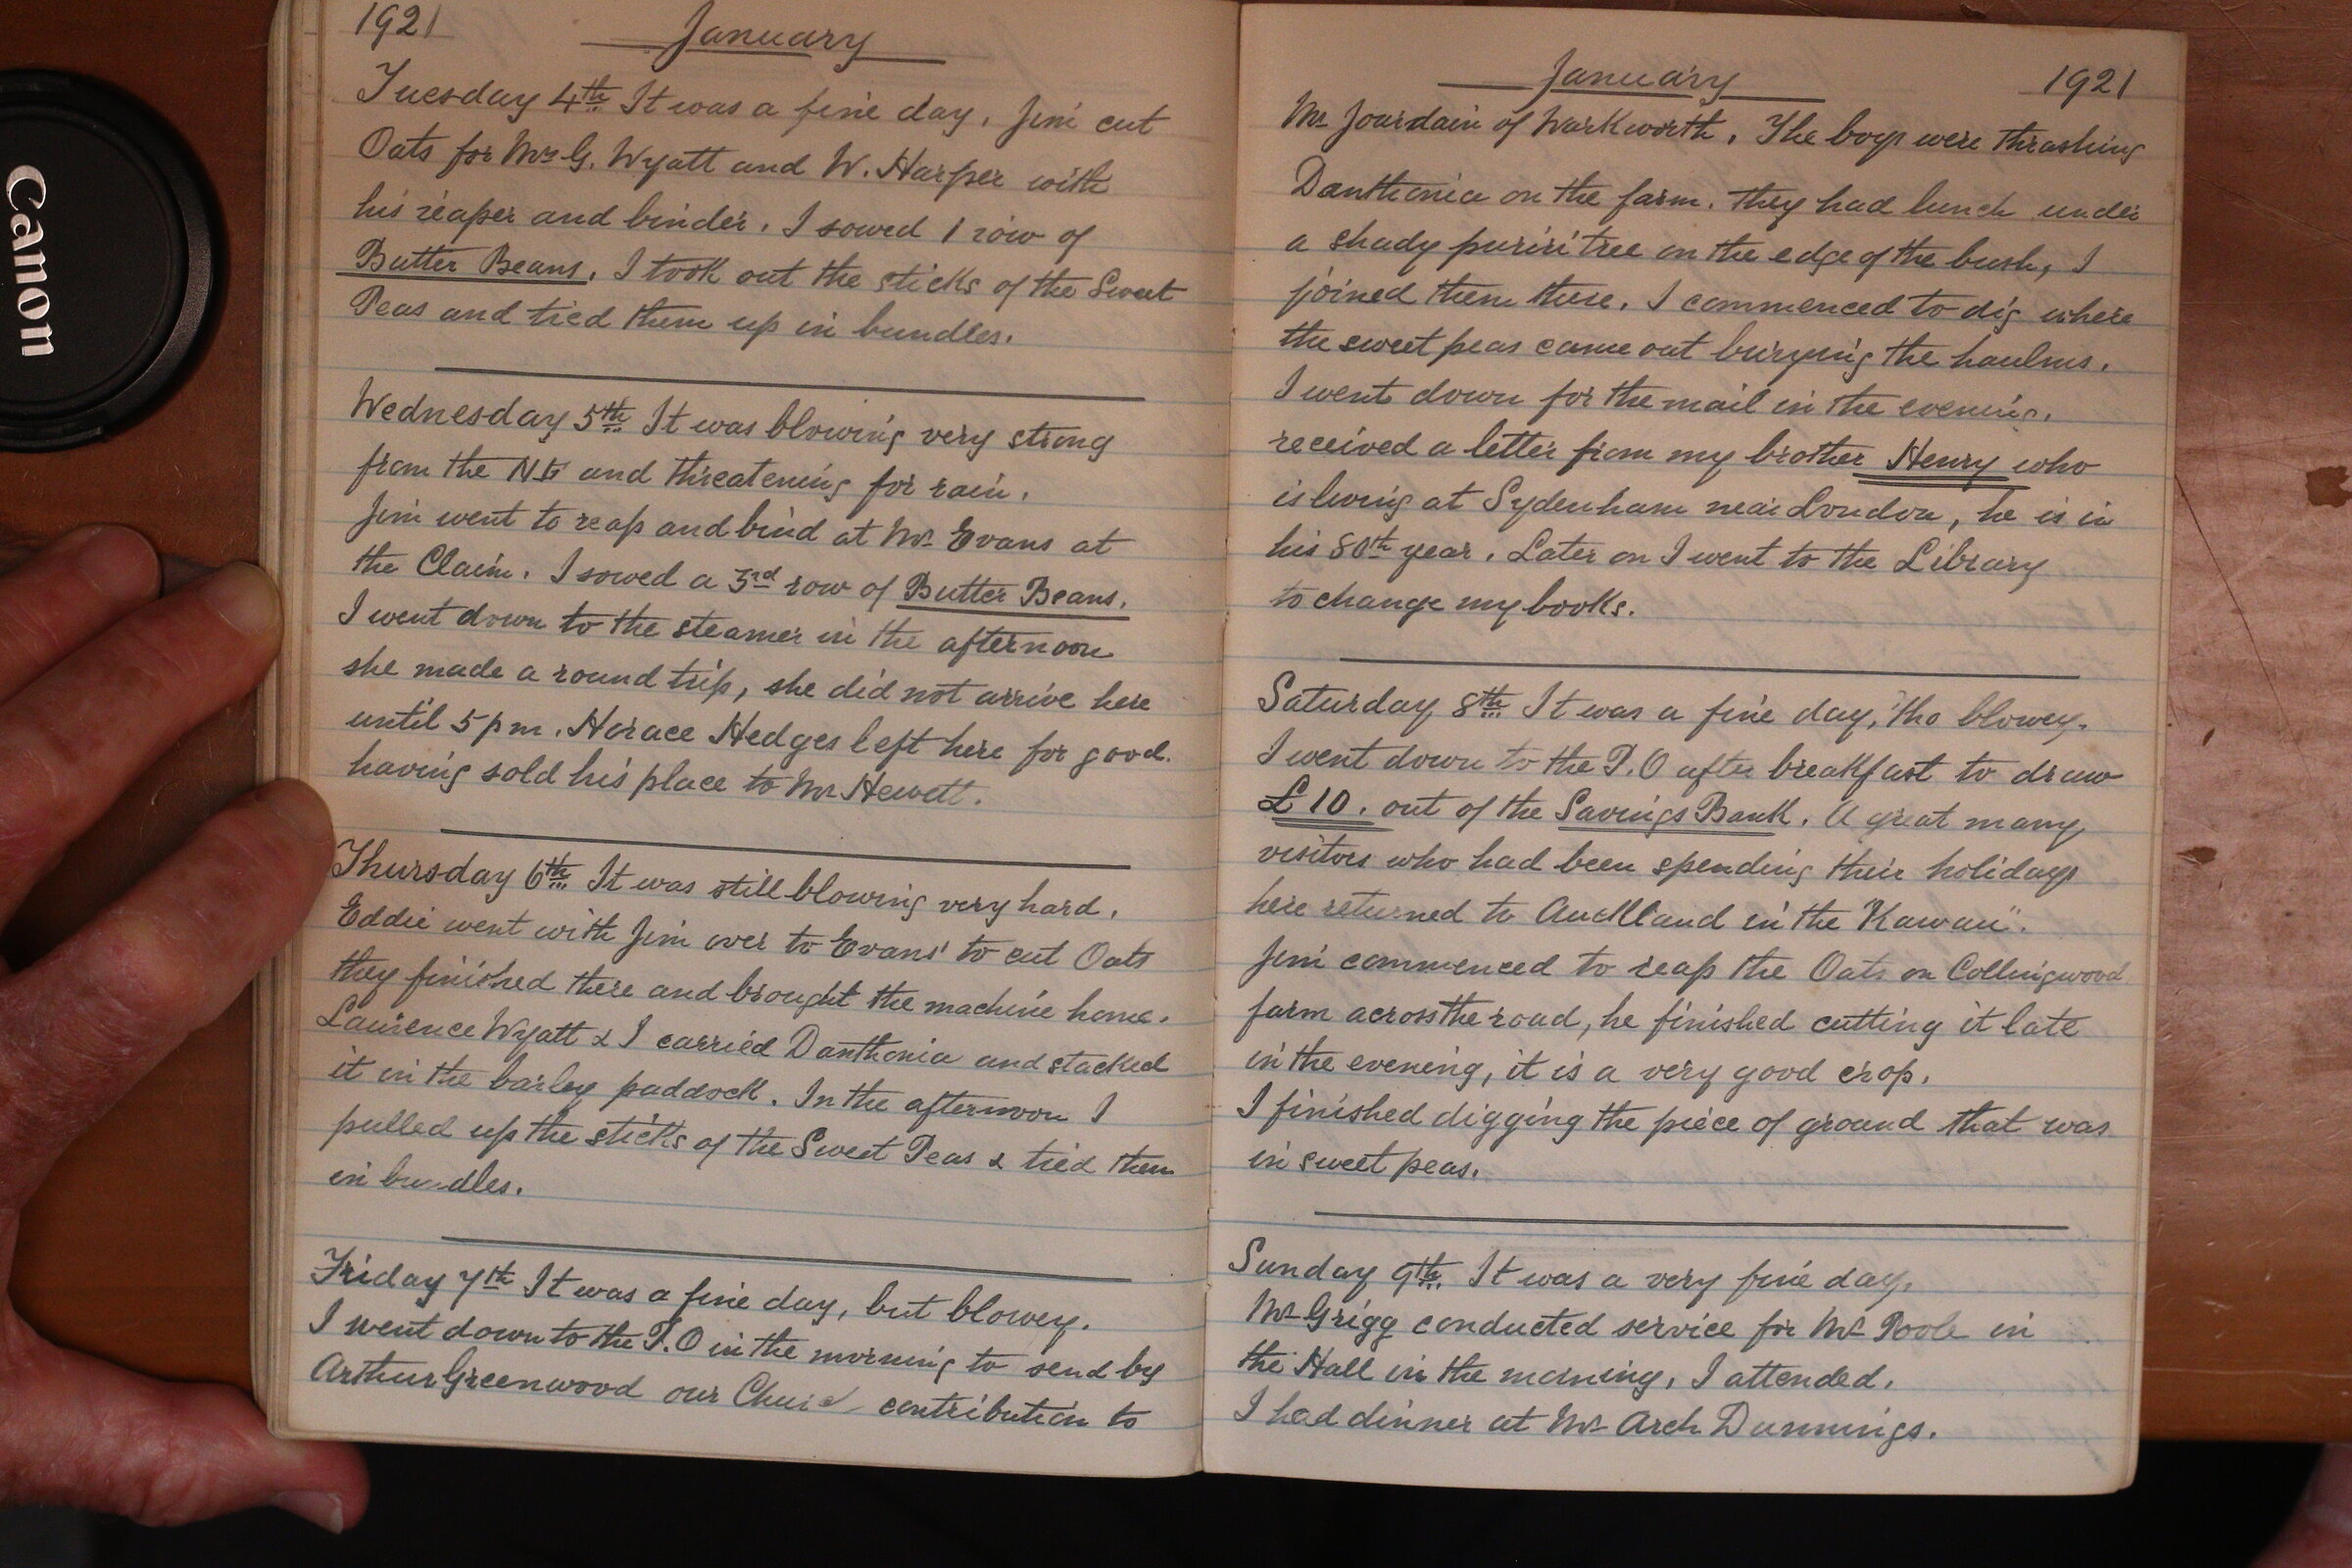 Canon
1921
January
Tuesday 4th It was a fine day. Jim cut
Oats for Mr G. Wyatt and W. Harper with
his reaper and binder. I sowed 1 row of
Butter Beans. I took out the sticks of the Sweet
Peas and tied them up in bundles.
Wednesday 5th It was blowing very strong
from the NE and threatening for rain.
Jim went to reap and bind at Mr Evans at
the Claim. I sowed a 3rd row of Butter Beans.
I went down to the steamer in the afternoon
she made a round trip, she did not arrive here
until 5 pm. Horace Hedges left here for good.
having sold his place to Mr Hewett.
Thursday 6th It was still blowing very hard.
Eddie went with Jim over to Evans' to cut Oats
they finished there and brought the machine home.
Laurence Wyatt & I carried Danthonia and stacked
it in the barley paddock. In the afternoon I
pulled up the sticks of the Sweet Peas & tied them
in bundles.
Friday 7th It was a fine day, but blowey.
I went down to the P.O in the morning to send by
Arthur Greenwood our Church contribution to
January
1921
Mr Jourdain of Warkworth. The boys were thrashing
Danthonia on the farm. they had lunch under
a shady puriri tree on the edge of the bush, I
joined them there. I commenced to dig where
the sweet peas came out burying the haulms.
I went down for the mail in the evening.
received a letter from my brother Henry who
is living at Sydenham near London, he is in
his 80th year. Later on I went to the Library
to change my books.
Saturday 8th It was a fine day, 'tho blowey.
I went down to the P.O after breakfast to draw
£10. out of the Savings Bank. A great many
visitors who had been spending their holidays
here returned to Auckland in the "Kawau".
Jim commenced to reap the Oats on Collingwood
farm across the road, he finished cutting it late
in the evening, it is a very good crop.
I finished digging the piece of ground that was
in sweet peas.
Sunday 9th. It was a very fine day.
Mr Grigg conducted service for Mr Poole in
the Hall in the morning, I attended.
I had dinner at Mr Arch Dunnings.